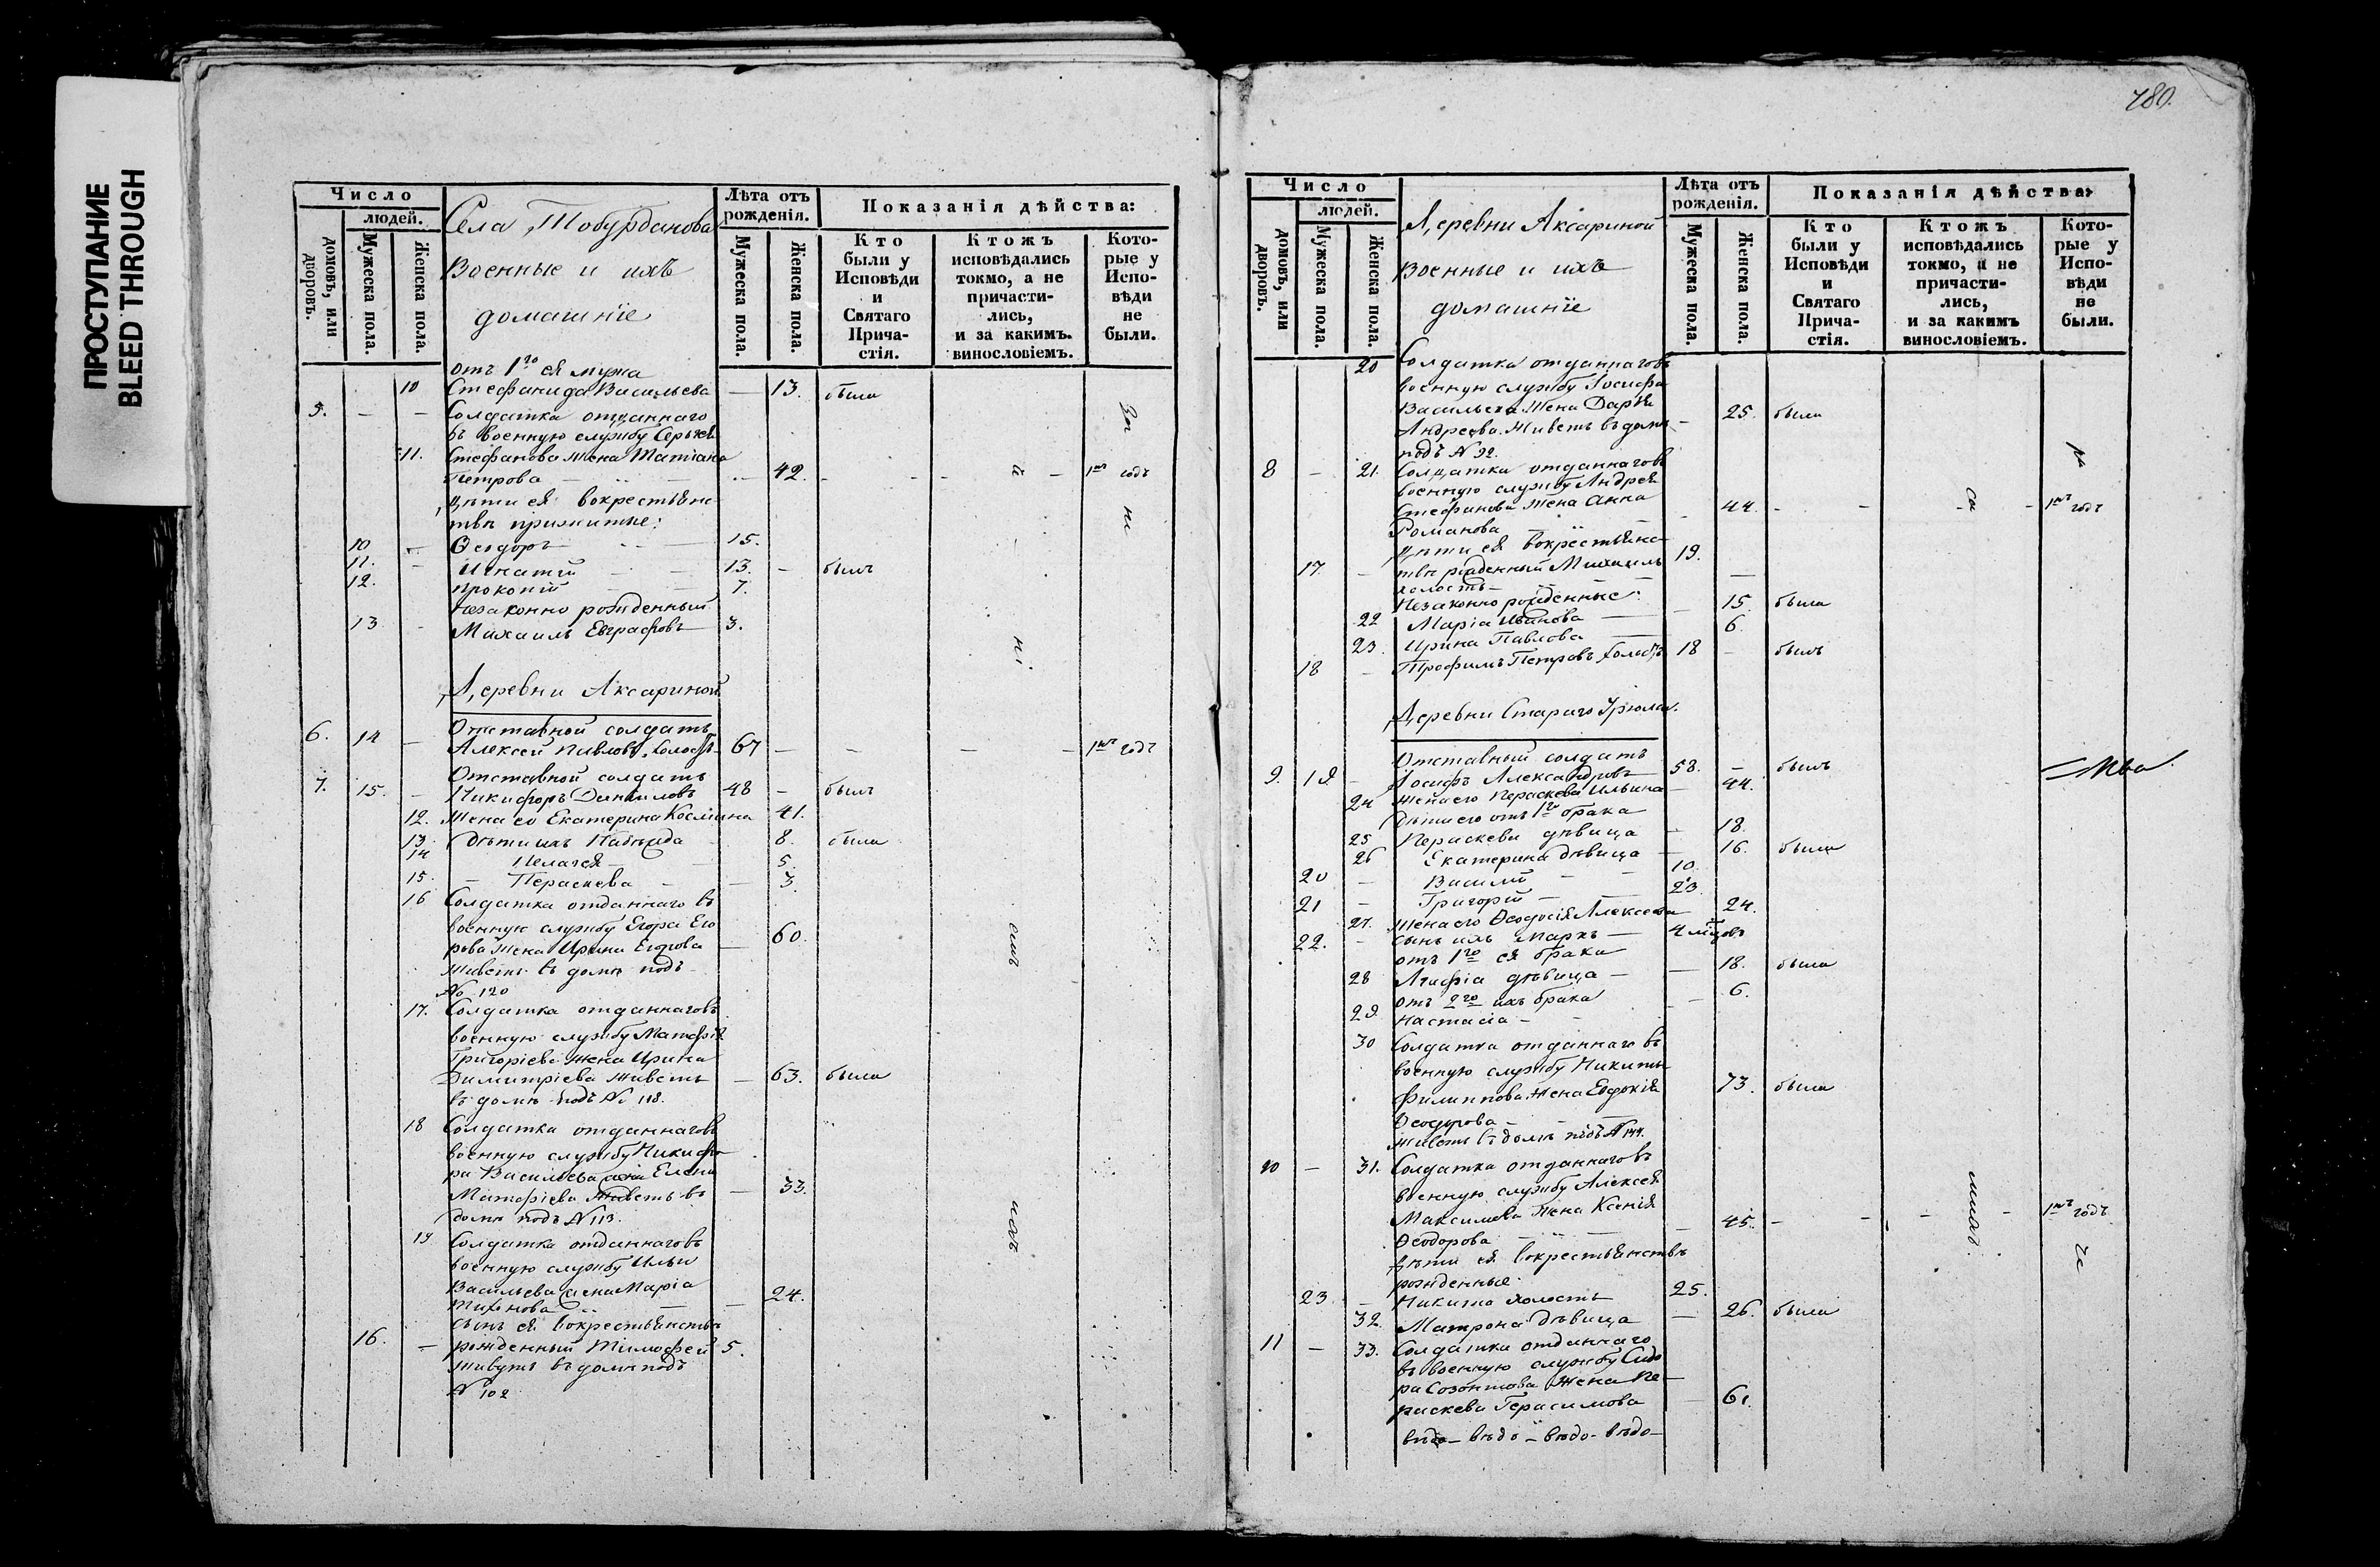 ПРОСТУПАНИЕ
BLEED THROUGH
Число
людей.
домовъ, или дворовъ.
Мужеска пола.
Женска пола.
Села Тобурданова
Военные и ихъ
домашніе
Лѣта отъ рожденія.
Мужеска пола.
Женска пола.
Показанія дѣйства:
Кто были у Исповѣди и Святаго Прича-стія.
Ктожъ исповѣдались токмо, а не причасти-лись, и за какимъ. винословіемъ.
Кото-рые у Испо-вѣди не были.
отъ 1го ея мужа
10 Стефанида Васильева — 13. была
5. — — Солдатка отданнаго
въ военную службу Сергея
11. Стефанова жена Татіана
Петрова — 42. - - - 1й годъ
дѣти ея вокрестьянс
твѣ прижитые:
10 — Ѳеодоръ 15.
11. — Игнатій 13. — былъ
12. Прокопій 7.
незаконно рожденный
13 - Михаилъ Евграфовъ 3.
Деревни Аксариной
Отставной солдатъ
6. 14 — Алексей Павловъ, холостъ 67 — — — 1й годъ
Отставной солдатъ
7. 15. — Никифоръ Даниловъ 48 - былъ
12. Жена его Екатерина Космина 41.
13. Дѣти ихъ Надежда 8. была
14 Пелагея — 5.
15. — Параскева — 3.
16 Солдатка отданнаго въ
военную службу Егора Его
рова жена Ирина Егорова — 60.
живетъ въ домѣ подъ
№ 120
17. Солдатка отданнаговъ
военную службу Матфея
Григоріева жена Ирина
Димитріева живетъ — 63. была
въ домѣ подъ № 118.
18 Солдатка отданнаговъ
военную службу Никифо
ра Васильева жена Елена
Матфіева живетъ въ — 33.
домѣ подъ № 113.
19 Солдатка отданнаговъ
военную службу Ильи
Васильева жена Марія 24.
Тихонова — —
сынъ ея вокрестьянствѣ
16. — рожденный Тимофей 5.
живутъ въ домѣ подъ
№ 102
780.
Число
людей.
домовъ, или дворовъ.
Мужеска пола.
Женска пола.
Деревни Аксариной
Военные и ихъ
домашніе
Лѣта отъ рожденія.
Мужеска пола.
Женска пола.
Показанія дѣйства:
Кто были у Исповѣди и Святаго Прича-стія.
Ктожъ исповѣдались токмо, а не причасти-лись, и за какимъ винословіемъ.
Кото-рые у Испо-вѣди не были.
20 Солдатка отданнаговъ
военную службу Іосифа
Васильева жена Дарья — 25. была
Андреева. живетъ въ домѣ
подъ № 92.
8 — 21. Солдатка отданнаговъ
военную службу Андрея
Стефанова жена Анна 44. - - - 1й годъ
Романова —
дѣти ея вокрестьянс
17. — твѣ рожденный Михаилъ 19.
холостъ —
Незаконно рожденные:
22 Марія Иванова — 15. была
23. Ирина Павлова — 6.
18 — Трофимъ Петровъ холостъ 18 - былъ
Деревни Стараго Урюма.
Отставный солдатъ
9. 19 - Іосифъ Александровъ 58. — былъ
24 жена его Параскева Ильина 44.
Дѣти его отъ 1го брака
25 Параскева дѣвица — 18.
26 Екатерина дѣвица — 16. была
20 — Василій — 10.
21 - Григорій — 23
27. жена его Ѳеодосія Алексеева 24.
22. - сынъ ихъ Маркъ — 4 мѣсцовъ
отъ 1го ея брака
28 Агафія дѣвица — 18. была
отъ 2го ихъ брака
29. Настасіа — 6.
30 Солдатка отданнаго въ
военную службу Никиты
Филиппова жена Евдокія 73. была
Ѳеодорова —
живетъ въ домѣ подъ № 144.
10 — 31. Солдатка отданнаговъ
военную службу Алексея
Максимова жена Ксенія
Ѳеодорова — 45. - - - 1й годъ
дѣти ея вокрестьянствѣ
рожденные:
23 — Никита холостъ 25.
32. Матрона дѣвица — 26. была
11 — 33. Солдатка отданнаго
въ военную службу Сидо
ра Созонтова жена Па-
раскева Герасимова — 61